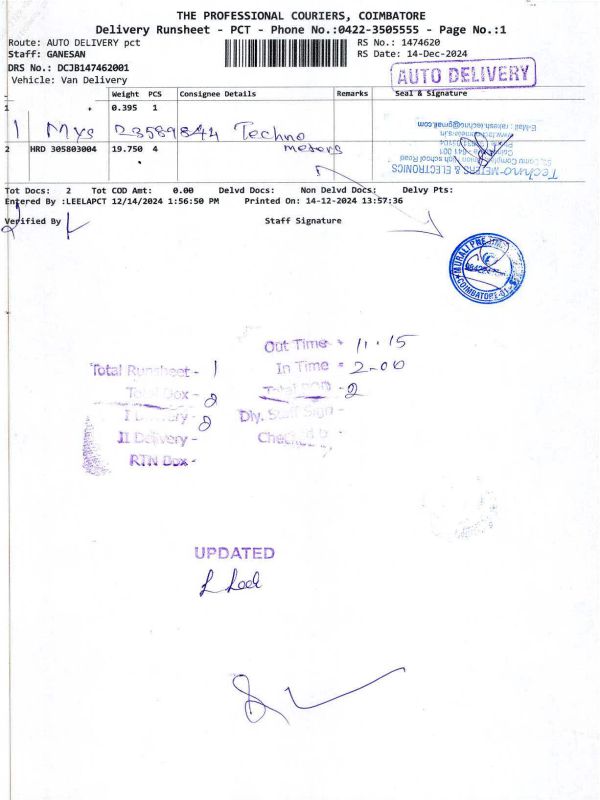 THE PROFESSIONAL COURIERS, COIMBATORE
Delivery Runsheet - PCT - Phone No.:0422-3505555 - Page No.:1
Route: AUTO DELIVERY pct
RS No.: 1474620
Staff: GANESAN
RS Date: 14-Dec-2024
DRS No.: DCJB147462001
AUTO DELIVERY
Vehicle: Van Delivery
Weight PCS Consignee Details Remarks Seal & Signature
1 0.395 1
1 Mys 23589844 Techno
meters
2 HRD 305803004 19.750 4
Techno-METERS & ELECTRONICS
E-Mail: rakesh.techno@gmail.com
Tot Docs: 2 Tot COD Amt: 0.00 Delvd Docs: Non Delvd Docs: Delvy Pts:
Entered By :LEELAPCT 12/14/2024 1:56:50 PM Printed On: 14-12-2024 13:57:36
Verified By Staff Signature
COIMBATORE
Out Time - 11.15
Total Runsheet - 1
In Time - 2-00
Total Box - 2
Total POD - 2
I Delivery - 2
Dly. Staff Sign -
II Delivery -
RTN Box -
UPDATED